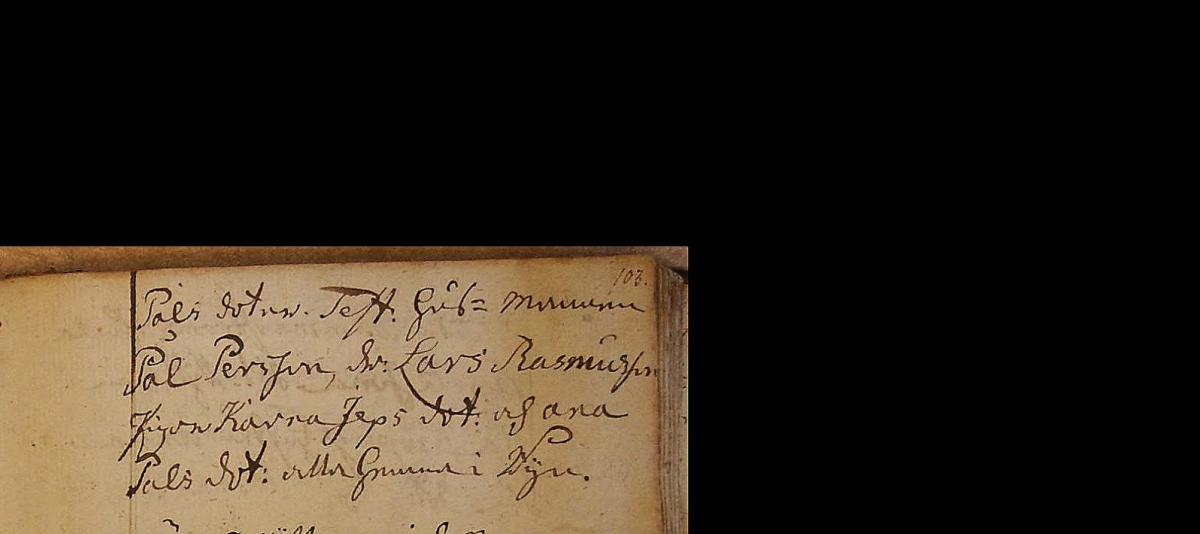 103.
Påls doter. Test: Hus= mannen
Pål Persson, dr: Lars Rasmusson
Pigon Karna Jeps dot: och ana
Påls dot: alla hemma i Byn.